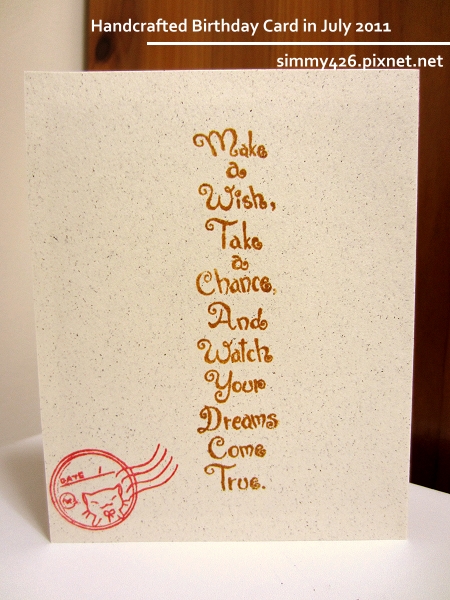 Handcrafted Birthday Card in July 2011
simmy426.pixnet.net
Make
a
Wish,
Take
a
Chance,
And
Watch
Your
Dreams
Come
True.
DATE /